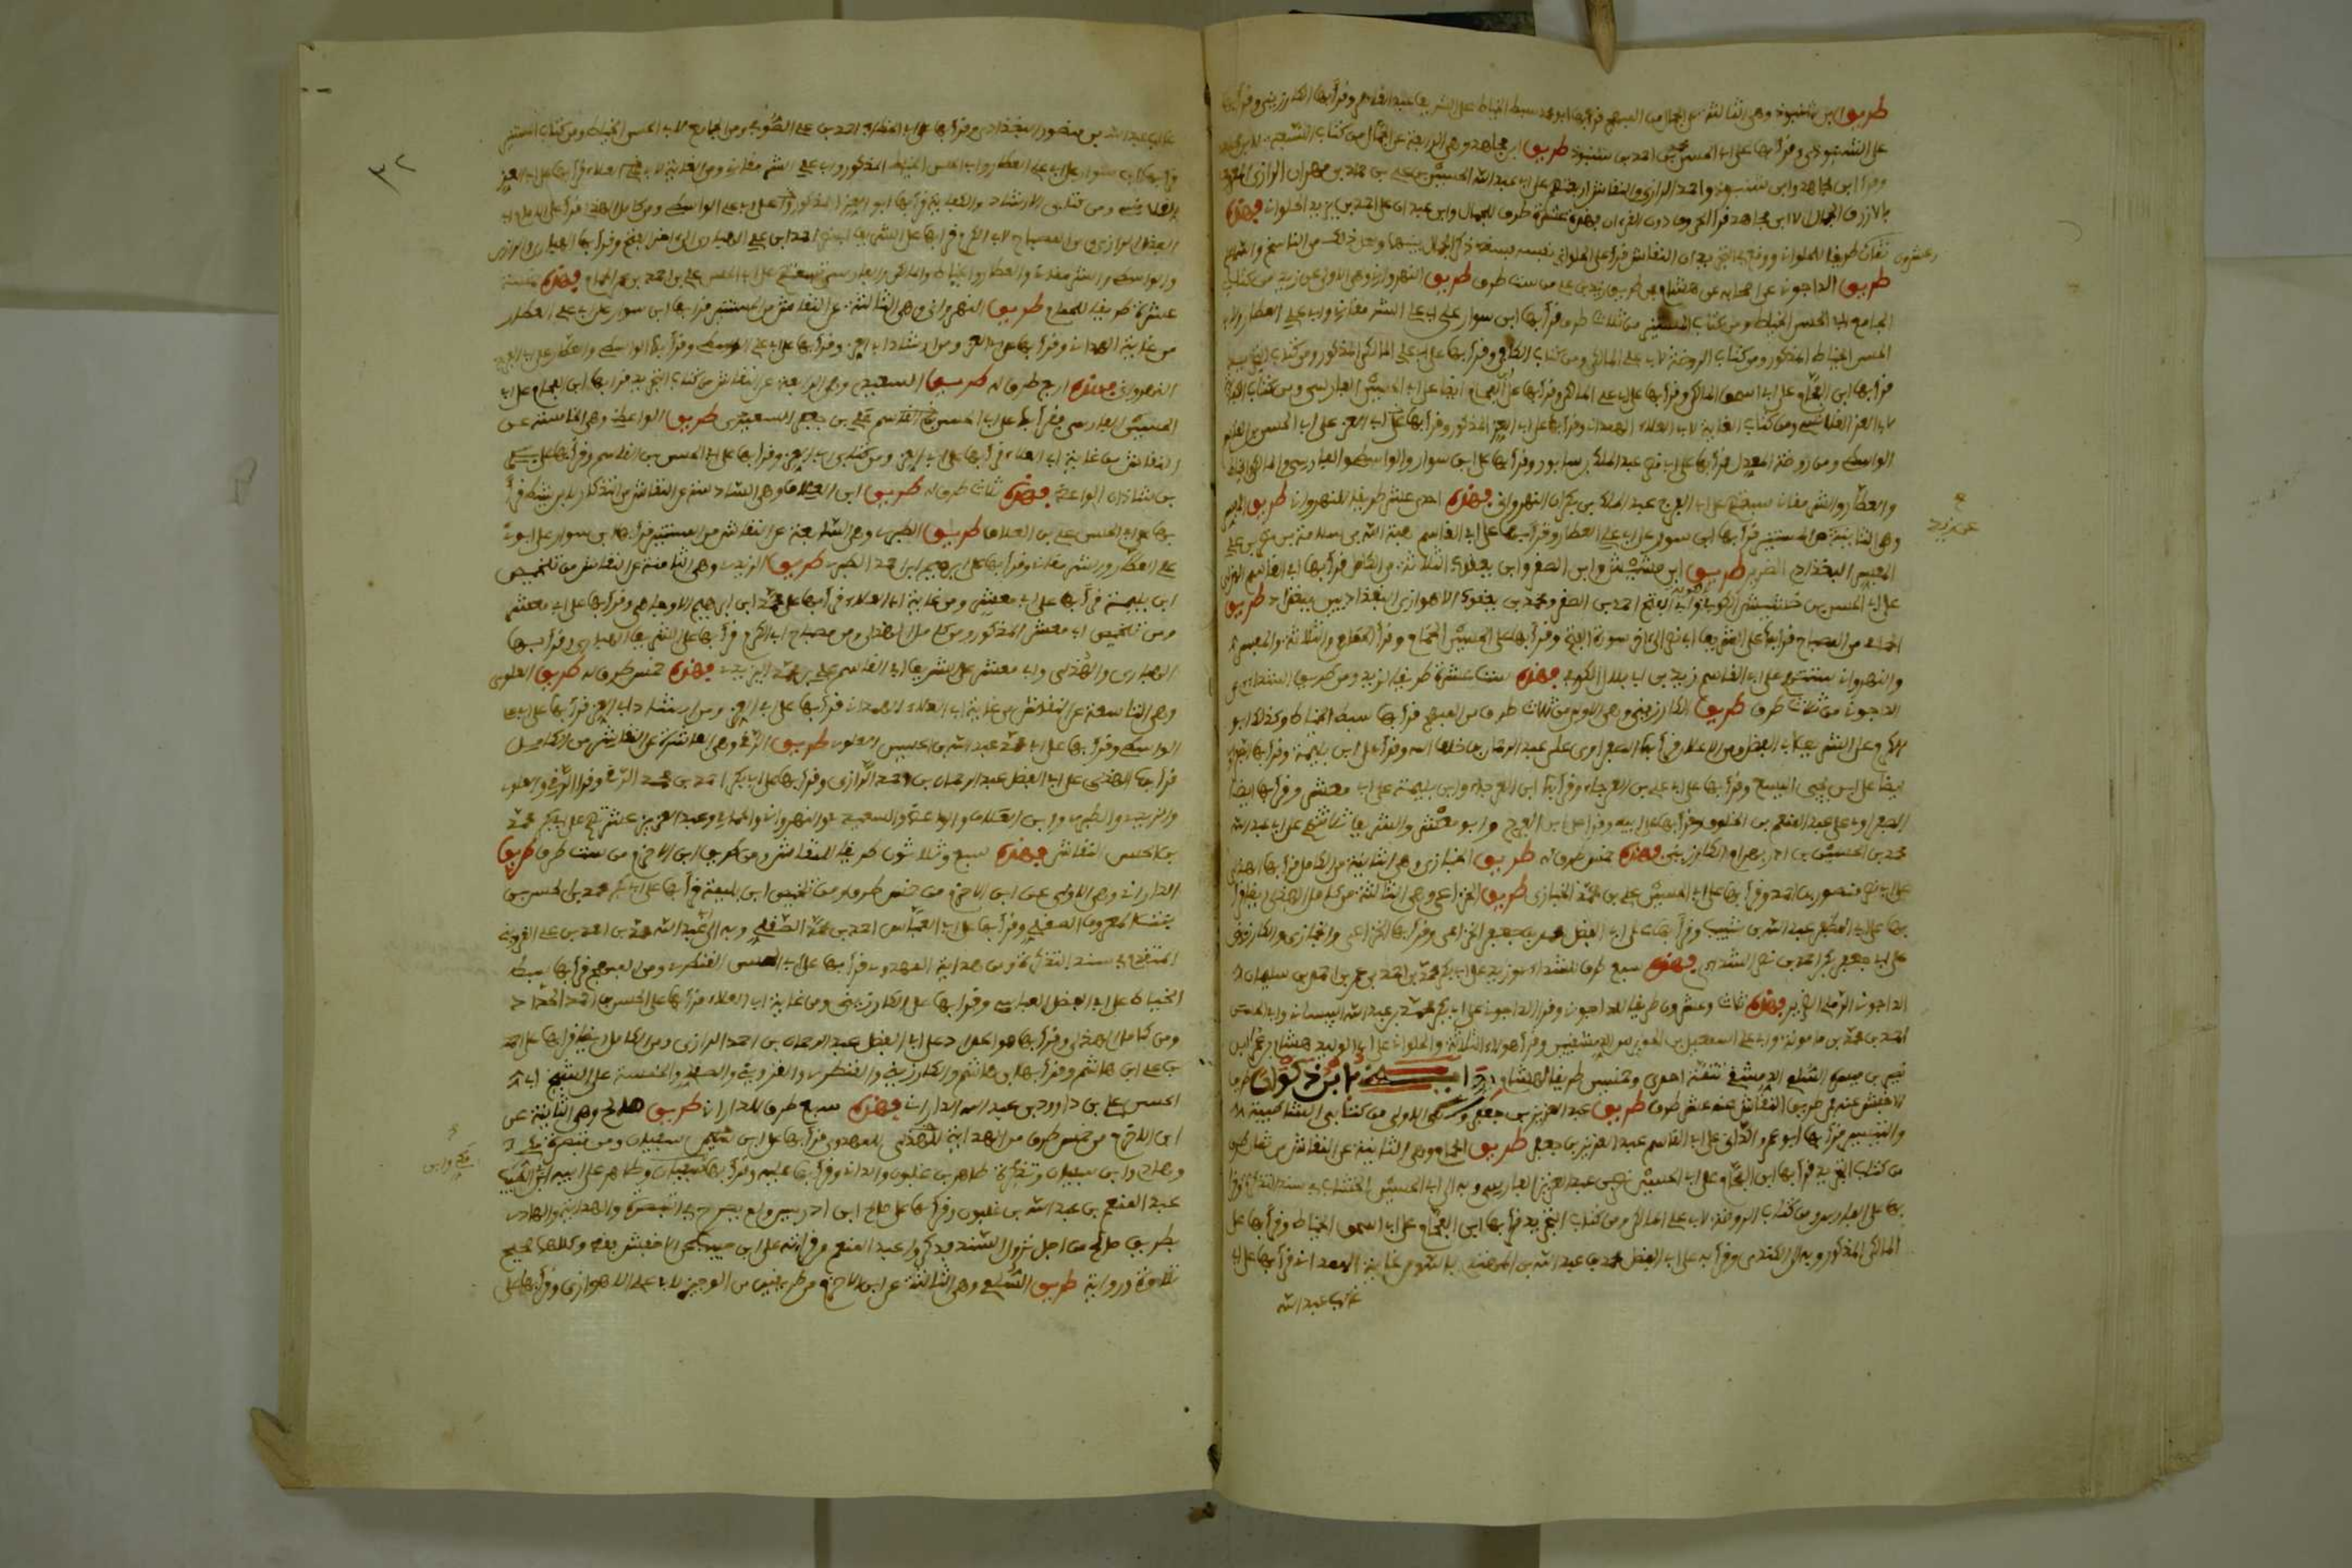 طريق ابن شنبوذ وهي الثالثة عن الجمال من المبهج قرأ بها أبو محمد سبط الخياط على الشريف عبد القاهر وقرأ بها الكارزيني وقرأ بها
على الشنبوذي وقرأ بها على أبي الحسن محمد بن أحمد بن شنبوذ طريق ابن مجاهد وهي الرابعة عن الجمال من كتاب السبعة لابن مجاهد
وقرأ ابن مجاهد وابن شنبوذ وأحمد الرازي والنقاش أربعتهم على أبي عبد الله الحسين بن علي بن حماد بن مهران الرازي المعروف
بالأزرق الجمال إلا ابن مجاهد قرأ الحروف دون القرءان فهذه عشرة طرق للجمال وابن عبدان على أحمد بن يزيد الحلواني فهذه
ثمان طريقا للحلواني ووقع في التجريد أن النقاش قرأ على الحلواني نفسه فسقط ذكر الجمال بينهما ولعل ذلك من الناسخ والله أعلم
وعشرون
طريق الداجوني عن أصحابه عن هشام من طريق زيد بن علي من ست طرق طريق النهرواني وهي الأولى عن زيد من كتاب
الجامع لأبي الحسن الخياط ومن كتاب المستنير من ثلاث طرق قرأ بها ابن سوار على أبي علي الشرمقاني وأبي علي العطار وأبي
الحسن الخياط المذكور ومن كتاب الروضة لأبي علي المالكي ومن كتاب الكافي وقرأ بها على أبي علي المالكي المذكور ومن كتاب التجريد
قرأ بها ابن الفحام على أبي إسحق المالكي وقرأ بها على أبي علي المالكي وقرأ بها ابن الفحام أيضا على أبي الحسين الفارسي ومن كتاب الكفاية
لأبي العز القلانسي ومن كتاب الغاية لأبي العلاء الهمداني وقرأ بها على أبي العز المذكور وقرأ بها على أبي العز على أبي الحسن بن القاسم
الواسطي ومن روضة المعدل قرأ بها على أبي نصر عبد الملك بن سابور وقرأ بها على ابن سوار والواسطي والفارسي والمالكي والخياط
والعطار والشرمقاني سبعتهم على أبي الفرج عبد الملك بن بكران النهرواني فهذه احدى عشر طريقا للنهرواني طريق المفسر
وهي الثانية من المستنير قرأ بها ابن سوار على أبي علي العطار وقرأ بها على أبي القاسم هبة الله بن سلامة بن نصر بن علي
عن زيد
المفسر البغدادي الضرير طريق ابن خشيش وابن الصقر وابن يعقوب الثلاثة من الكامل قرأ بها أبو القاسم الهذلي
على أبي الحسن بن خشيش الكوفي وأبي الفتح أحمد بن الصقر ومحمد بن يعقوب الأهوازي البغداديين ببغداد طريق
الحمامي من المصباح قرأ بها على الشريف أبي نصر إلى آخر سورة الفتح وقرأ بها على الحسين الحمامي وقرأ الحمامي والثلاثة والمفسر
والنهرواني ستتهم على أبي القاسم زيد بن أبي بلال الكوفي فهذه ست عشرة طريقا لزيد ومن طريق الشذائي عن
الداجوني من ثلاث طرق طريق الكارزيني وهي الأولى من ثلاث طرق من المبهج قرأ بها سبط الخياط وكذلك أبو
الكرم على الشريف أبي الفضل ومن الإعلان قرأ بها الصفراوي على عبد الرحمان بن خلف الله وقرأ على ابن بليمة وقرأ بها الصفراوي
أيضا على ابن يحيى اليسع وقرأ بها على أبي علي بن العرجاء وقرأ بها ابن العرجاء وابن بليمة على أبي معشر وقرأ بها أيضا
الصفراوي على عبد المنعم بن الخلوف وقرأ بها على أبيه وقرأ على ابن الفرج وأبو معشر والشريف ثلاثتهم على أبي عبد الله
محمد بن الحسين بن آذربهرام الكارزيني فهذه خمس طرق له طريق الخبازي وهي الثانية من الكامل قرأ بها الهذلي
على أبي نصر منصور بن أحمد وقرأ بها على أبي الحسين علي بن محمد الخبازي طريق الخزاعي وهي الثالثة من كامل الهذلي أيضا قرأ
بها على أبي المظفر عبد الله بن شبيب وقرأ بها على أبي الفضل محمد بن جعفر الخزاعي وقرأ بها الخزاعي والخبازي والكارزيني
على أبي بكر أحمد بن نصر الشذائي فهذه سبع طرق للشذائي وزيد على أبي بكر محمد بن أحمد بن عمر بن أحمد بن سليمان
الداجوني الرملي الضرير فهذه ثلاث وعشرون طريقا للداجوني وقرأ الداجوني على أبي بكر محمد بن عبد الله البيساني وأبي الحسن
أحمد بن محمد بن مامويه وأبي علي إسمعيل بن الحويرس الدمشقيين وقرأ هؤلاء الثلاثة والحلواني على أبي الوليد هشام بن عمار بن
نصير بن ميسرة السلمي الدمشقي تتمة احدى وخمسين طريقا لهشام رواية ابن ذكوان طرق
الأخفش عنه فمن طريق النقاش عنه عشر طرق طريق عبد العزيز بن جعفر وهي الأولى من كتابي الشاطبية
والتيسير قرأ بها أبو عمرو الداني على أبي القاسم عبد العزيز بن جعفر طريق الحمامي وهي الثانية عن النقاش من ثمان طرق
من كتاب التجريد قرأ بها ابن الفحام على أبي الحسين نصر بن عبد العزيز الفارسي وبه إلى أبي الحسين الخشاب في سند التذكار قرأ
بها على الفارسي ومن كتاب الروضة لأبي علي المالكي ومن كتاب التجريد قرأ بها ابن الفحام على أبي إسحق الخياط وقرأ بها على
المالكي المذكور وبه إلى الكندي وقرأ به على أبي الفضل محمد بن عبد الله بن المهتدي بالله ومن غاية الهمداني قرأ بها على أبي
غالب عبد الله
٣٢
غالب عبد الله بن منصور البغدادي وقرأ بها على أبي الخطاب أحمد بن علي الصوفي ومن الجامع لأبي الحسن الخياط ومن كتاب المستنير
قرأ بها ابن سوار على أبي علي العطار وأبي الحسن الخياط المذكور وأبي علي الشرمقاني ومن الغاية لأبي العلاء قرأ بها على أبي العز
القلانسي ومن كتابي الإرشاد والكفاية قرأ بها أبو العز المذكور على أبي علي الواسطي ومن كامل الهذلي قرأ على أبي
الفضل الرازي ومن المصباح لأبي الكرم قرأ بها على الشريف أبي نصر أحمد بن علي الهباري إلى آخر الفتح وقرأ بها الهباري والرازي
والواسطي والشرمقاني والعطار والخياط والمالكي والفارسي تسعتهم على أبي الحسن علي بن أحمد بن عمر الحمامي فهذه خمسة
عشرة طريقا للحمامي طريق النهرواني وهي الثالثة عن النقاش من المستنير قرأ بها ابن سوار على أبي علي العطار
من غاية الهمداني وقرأ بها على أبي العز ومن إرشاد أبي العز وقرأ بها على أبي علي الواسطي وقرأ بها الواسطي والعطار على أبي الفرج
النهرواني فهذه أربع طرق له طريق السعيدي وهي الرابعة عن النقاش من كتاب التجريد قرأ بها ابن الفحام على أبي
الحسين الفارسي وقرأ بها على أبي الحسن علي بن جعفر السعيدي طريق الواعظ وهي الخامسة عن
النقاش من غاية أبي العلاء قرأ بها على أبي العز ومن كتابي أبي العز وقرأ بها على أبي الحسن بن القاسم وقرأ بها على بكر
بن شاذان الواعظ فهذه ثلاث طرق له طريق ابن العلاف وهي السادسة عن النقاش من التذكار لابن شيطا قرأ
بها على أبي الحسن علي بن العلاف طريق الطبري وهي السابعة عن النقاش من المستنير قرأ بها ابن سوار على أبوي
علي العطار والشرمقاني وقرأ بها على إبراهيم بن أحمد الطبري طريق الزيدي وهي الثامنة عن النقاش من تلخيص
ابن بليمة قرأ بها على أبي معشر ومن غاية أبي العلاء قرأ بها على محمد بن إبراهيم الأرجاهي وقرأ بها على أبي معشر
ومن تلخيص أبي معشر المذكور ومن كامل الهذلي ومن مصباح أبي الكرم قرأ بها على الشريف الهباري وقرأ بها
الهباري والهذلي وأبي معشر على الشريف أبي القاسم علي بن محمد الزيدي فهذه خمس طرق له طريق العلوي
وهي التاسعة عن النقاش من غاية أبي العلاء الهمداني قرأ بها على أبي العز ومن إرشاد أبي العز قرأ بها على أبي علي
الواسطي وقرأ بها على أبي محمد عبد الله بن الحسين العلوي طريق الرقي وهي العاشرة عن النقاش من الكامل
قرأ بها الهذلي على أبي الفضل عبد الرحمان بن أحمد الرازي وقرأ بها على أبي بكر أحمد بن محمد الرقي وقرأ الرقي والعلوي
والزيدي والطبري وابن العلاف والواعظ والسعيدي والنهرواني والحمامي وعبد العزيز عشرتهم على أبي بكر محمد
بن الحسن النقاش فهذه سبع وثلاثون طريقا للنقاش ومن طريق ابن الأخرم من ست طرق طريق
الداراني وهي الأولى عن ابن الأخرم من خمس طرق من تلخيص ابن بليمة قرأ بها على أبي بكر محمد بن الحسن بن
بنت المعروف الصقلي وقرأ بها على أبي العباس أحمد بن محمد الصقلي وبه إلى أبي عبد الله محمد بن أحمد بن علي القزويني
المتقدم في سند التذكرة ومن هداية المهدوي قرأ بها على أبي الحسن القنطري ومن المبهج قرأ بها سبط
الخياط على أبي الفضل العباسي وقرأ بها على الكارزيني ومن غاية أبي العلاء قرأ بها على الحسن بن أحمد الحداد
ومن كامل الهذلي وقرأ بها هو الحداد على أبي الفضل عبد الرحمان بن أحمد الرازي ومن الكامل أيضا قرأ بها على أحمد
بن علي بن هاشم وقرأ بها ابن هاشم والكارزيني والقنطري والقزويني والصقلي والخمسة على الشيخ أبي
الحسن علي بن داوود بن عبد الله الداراني فهذه سبع طرق للداراني طريق صالح وهي الثانية عن
ابن الأخرم من خمس طرق من الهداية للمهدوي قرأ بها على ابن سفيان ومن تبصرة مكي
وهادي ابن سفيان وتذكرة طاهر بن غلبون والداني وقرأ بها عليه وقرأ بها سفيان وطاهر على أبيه أبي الطيب
مكي وابن
عبد المنعم بن عبد الله بن غلبون وقرأ بها على صالح ابن إدريس ولم يصرح في التبصرة والهداية والهادي
بطريق صالح من أجل نزول السند فذكروا عبد المنعم وقراءته على ابن حبيب عن الأخفش بغيره وكلاهما صحيح
تلاوة ورواية طريق السلمي وهي الثالثة عن ابن الأخرم من طريقين من الوجيز لأبي علي الأهوازي وقرأ بها على